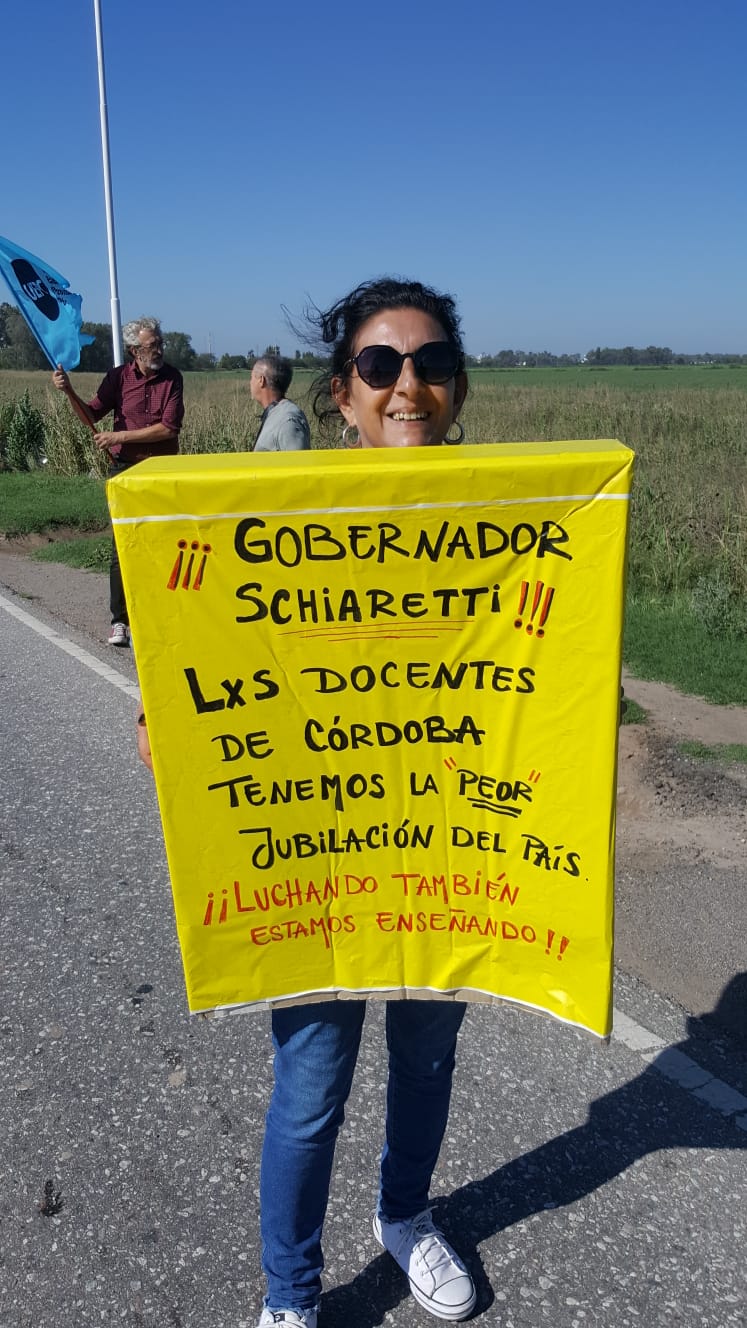 ¡¡¡ GOBERNADOR
SCHIARETTI !!!
LxS DOCENTES
DE CÓRDOBA
TENEMOS LA "PEOR"
JUBILACIÓN DEL PAÍS.
¡¡LUCHANDO TAMBIÉN
ESTAMOS ENSEÑANDO!!